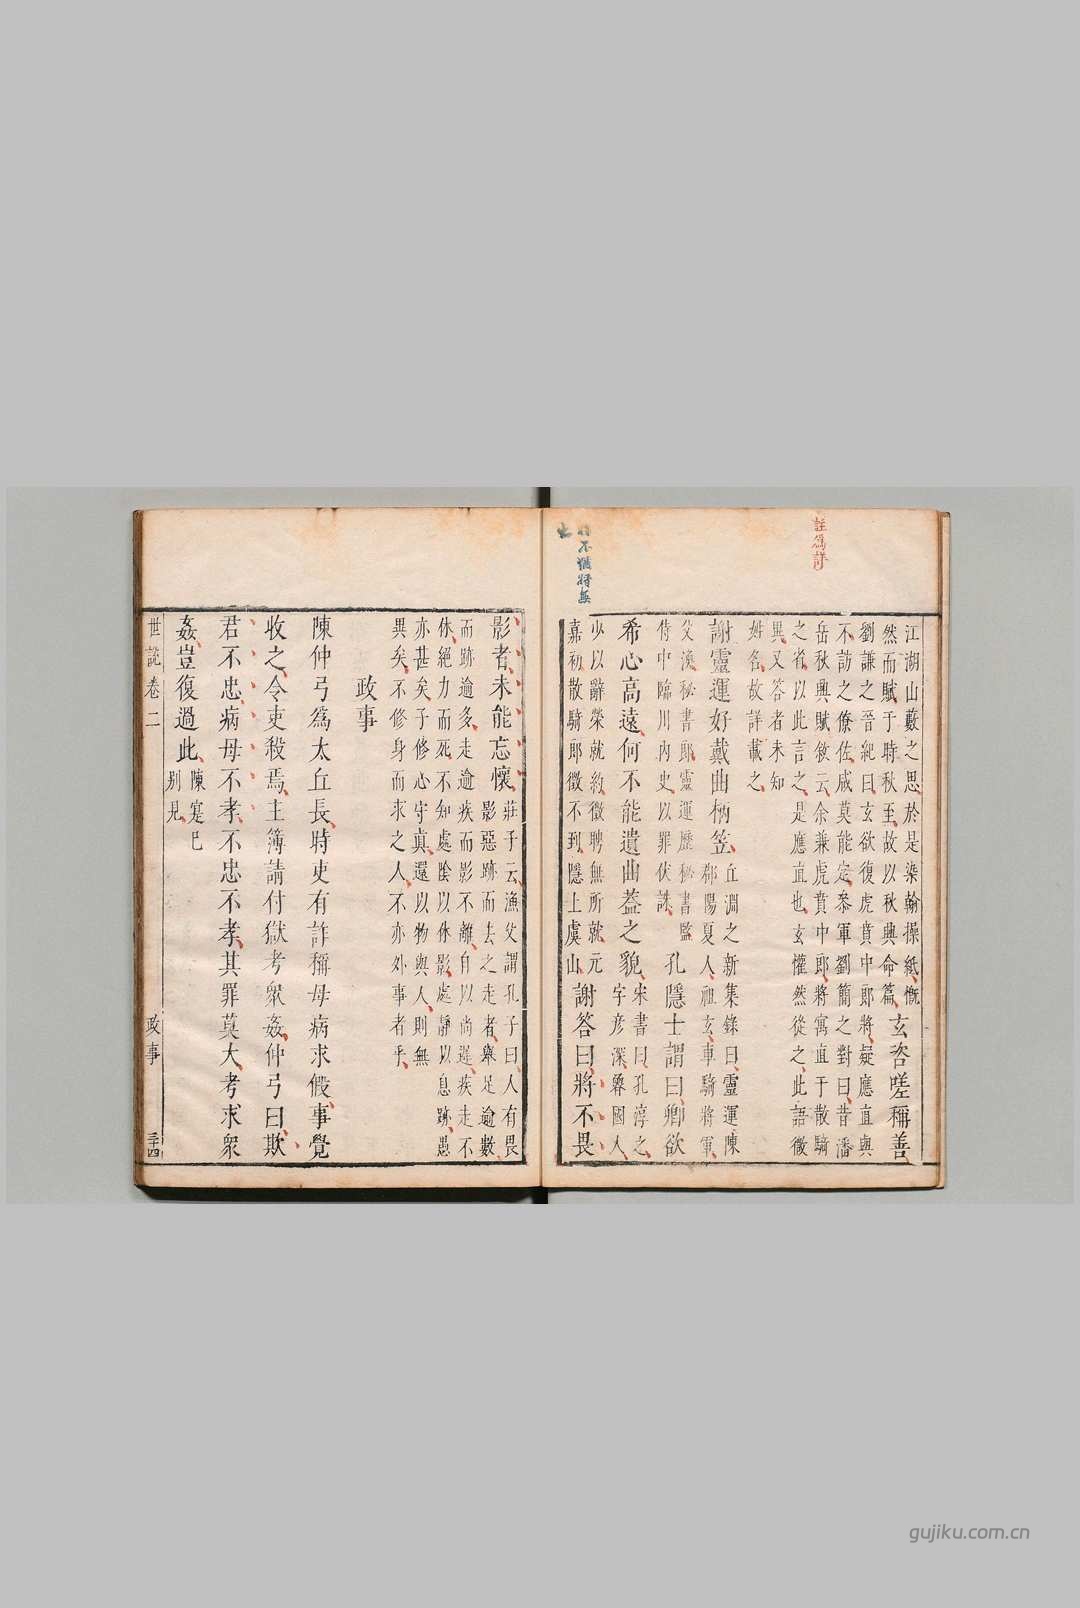 註爲詳
江湖山藪之思於是染翰操紙慨
然而賦于時秋至故以秋興命篇
玄咨嗟稱善
劉謙之晉紀曰玄欲復虎賁中郎將疑應直與
不訪之僚佐咸莫能定叅軍劉簡之對曰昔潘
岳秋興賦敘云余兼虎賁中郎將寓直于散騎
之省以此言之是應直也玄懽然從之此語微
異又答者未知
姓名故詳載之
謝靈運好戴曲柄笠
丘淵之新集錄曰靈運陳
郡陽夏人祖玄車騎將軍
父渙秘書郎靈運歷秘書監
侍中臨川內史以罪伏誅
孔隱士謂曰卿欲
希心高遠何不能遺曲蓋之貌
宋書曰孔淳之
字彥深魯國人
少以辭榮就約徵聘無所就元
嘉初散騎郎徵不到隱上虞山
謝答曰將不畏
不
將無
影者未能忘懷
莊子云漁父謂孔子曰人有畏
影惡跡而去之走者舉足逾數
而跡逾多走逾疾而影不離自以尚遲疾走不
休絕力而死不知處陰以休影處靜以息跡愚
亦甚矣子修心守真還以物與人則無
異矣不修身而求之人不亦外事者乎
政事
陳仲弓爲太丘長時吏有詐稱母病求假事覺
收之令吏殺焉主簿請付獄考衆姦仲弓曰欺
君不忠病母不孝不忠不孝其罪莫大考求衆
姦豈復過此
陳寔已
别見
世說卷二
政事
三十四
gujiku.com.cn